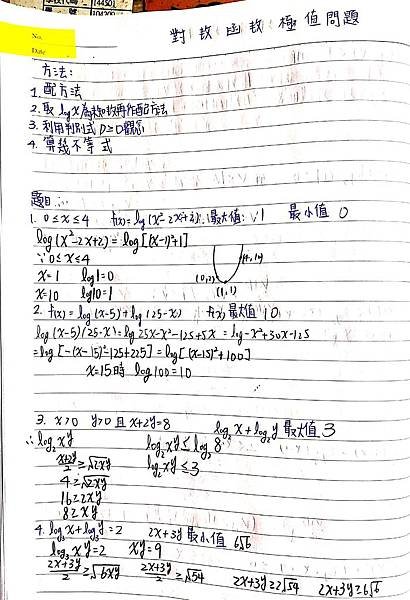 114501
104200
No.
Date
對數函數極值問題
方法:
1. 配方法
2. 取 log x 為未知數再作配方法
3. 利用判別式 D≥0觀念
4. 算幾不等式
題目:
1. 0≤x≤4 f(x)=log(x²-2x+2) 最大值: 1 最小值 0
log(x²-2x+2)=log[(x-1)²+1]
∵0≤x≤4
x=1 log1=0
x=10 log10=1
(4,10)
(0,2)
(1,1)
2. f(x)=log(x-5)+log(25-x) f(x)最大值 10
log(x-5)(25-x)=log25x-x²-125+5x=log-x²+30x-125
=log[-(x-15)²-125+225]=log[-(x-15)²+100]
x=15時 log100=10
3. x>0 y>0 且 x+2y=8 log₂x+log₂y 最大值 3
∴log₂xy log₂xy≤log₂8
x+2y/2≥√2xy log₂xy≤3
4≥√2xy
16≥2xy
8≥xy
4. log₃x+log₃y=2 2x+3y 最小值 6√6
log₃xy=2 xy=9
2x+3y/2≥√6xy 2x+3y/2≥√54 2x+3y≥2√54 2x+3y≥6√6